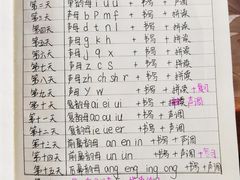 第三天 单韵母 i u ü + 书写 + 声调
第四天 声母 b p m f + 书写 + 拼读
第五天 声母 d t n l + 书写 + 拼读
第六天 声母 g k h + 书写 + 拼读
第七天 声母 j q x + 书写 + 拼读
第八天 声母 z c s + 书写 + 拼读
第九天 声母 zh ch sh r + 书写 + 拼读
第十天 声母 y w + 书写 + 拼读 + 复习
第十一天 复韵母 ai ei ui + 书写 + 声调
第十二天 复韵母 ao ou iu + 书写 + 声调
第十三天 复韵母 ie üe er + 书写 + 声调
第十四天 前鼻韵母 an en in + 书写 + 声调
第十五天 前鼻韵母 un ün + 书写 + 声调
第十五天 后鼻韵母 ang eng ing ong + 书写 + 声调